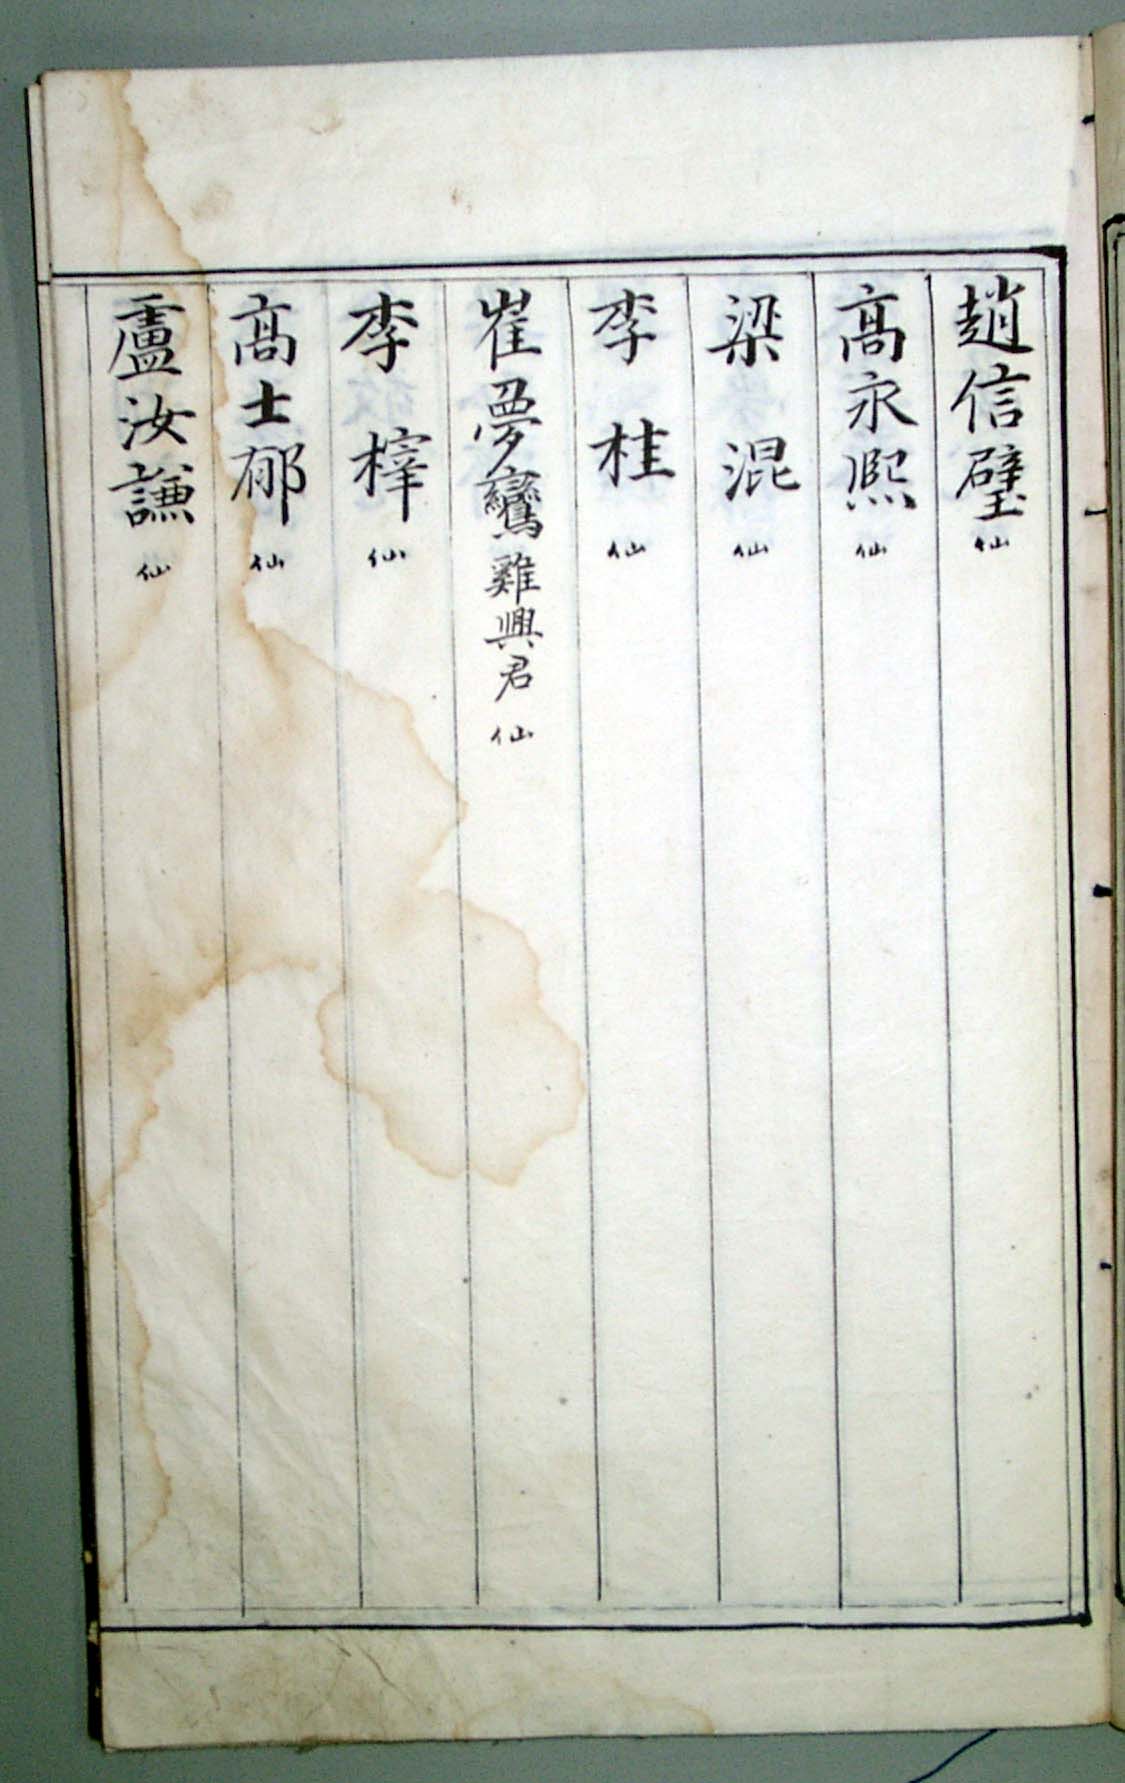 趙信璧仙
高永熈仙
梁混仙
李桂仙
崔夢鸞雞興君仙
李梓仙
高士郁仙
盧汝謙仙